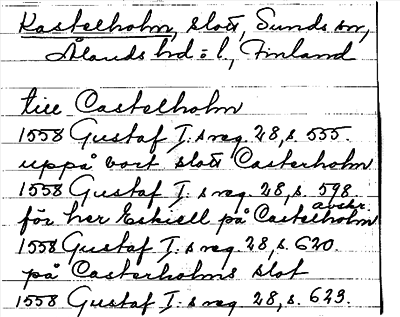 Kastelholm, slott, Sunds sn,
Ålands hd o l, Finland
till Castelholm
1558 Gustaf I:s reg. 28, s. 555.
uppå vort slott Casterholm
1558 Gustaf I:s reg. 28, s. 598.
avskr.
för her Eskiell på Castelholm
1558 Gustaf I:s reg. 28, s. 620.
på Casterholms slot
1558 Gustaf I:s reg 28, s. 623.